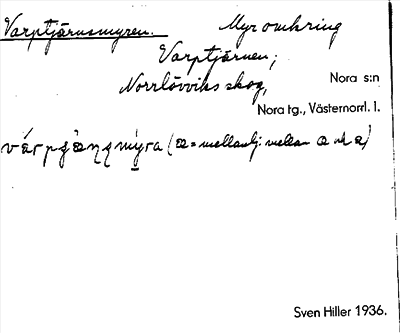 Varptjärnsmyren. Myr omkring
Varptjärnen;
Norrlövviks skog,
Nora s:n
Nora tg., Västernorrl. l.
(a = mellanlj. mellan a och a)
Sven Hiller 1936.